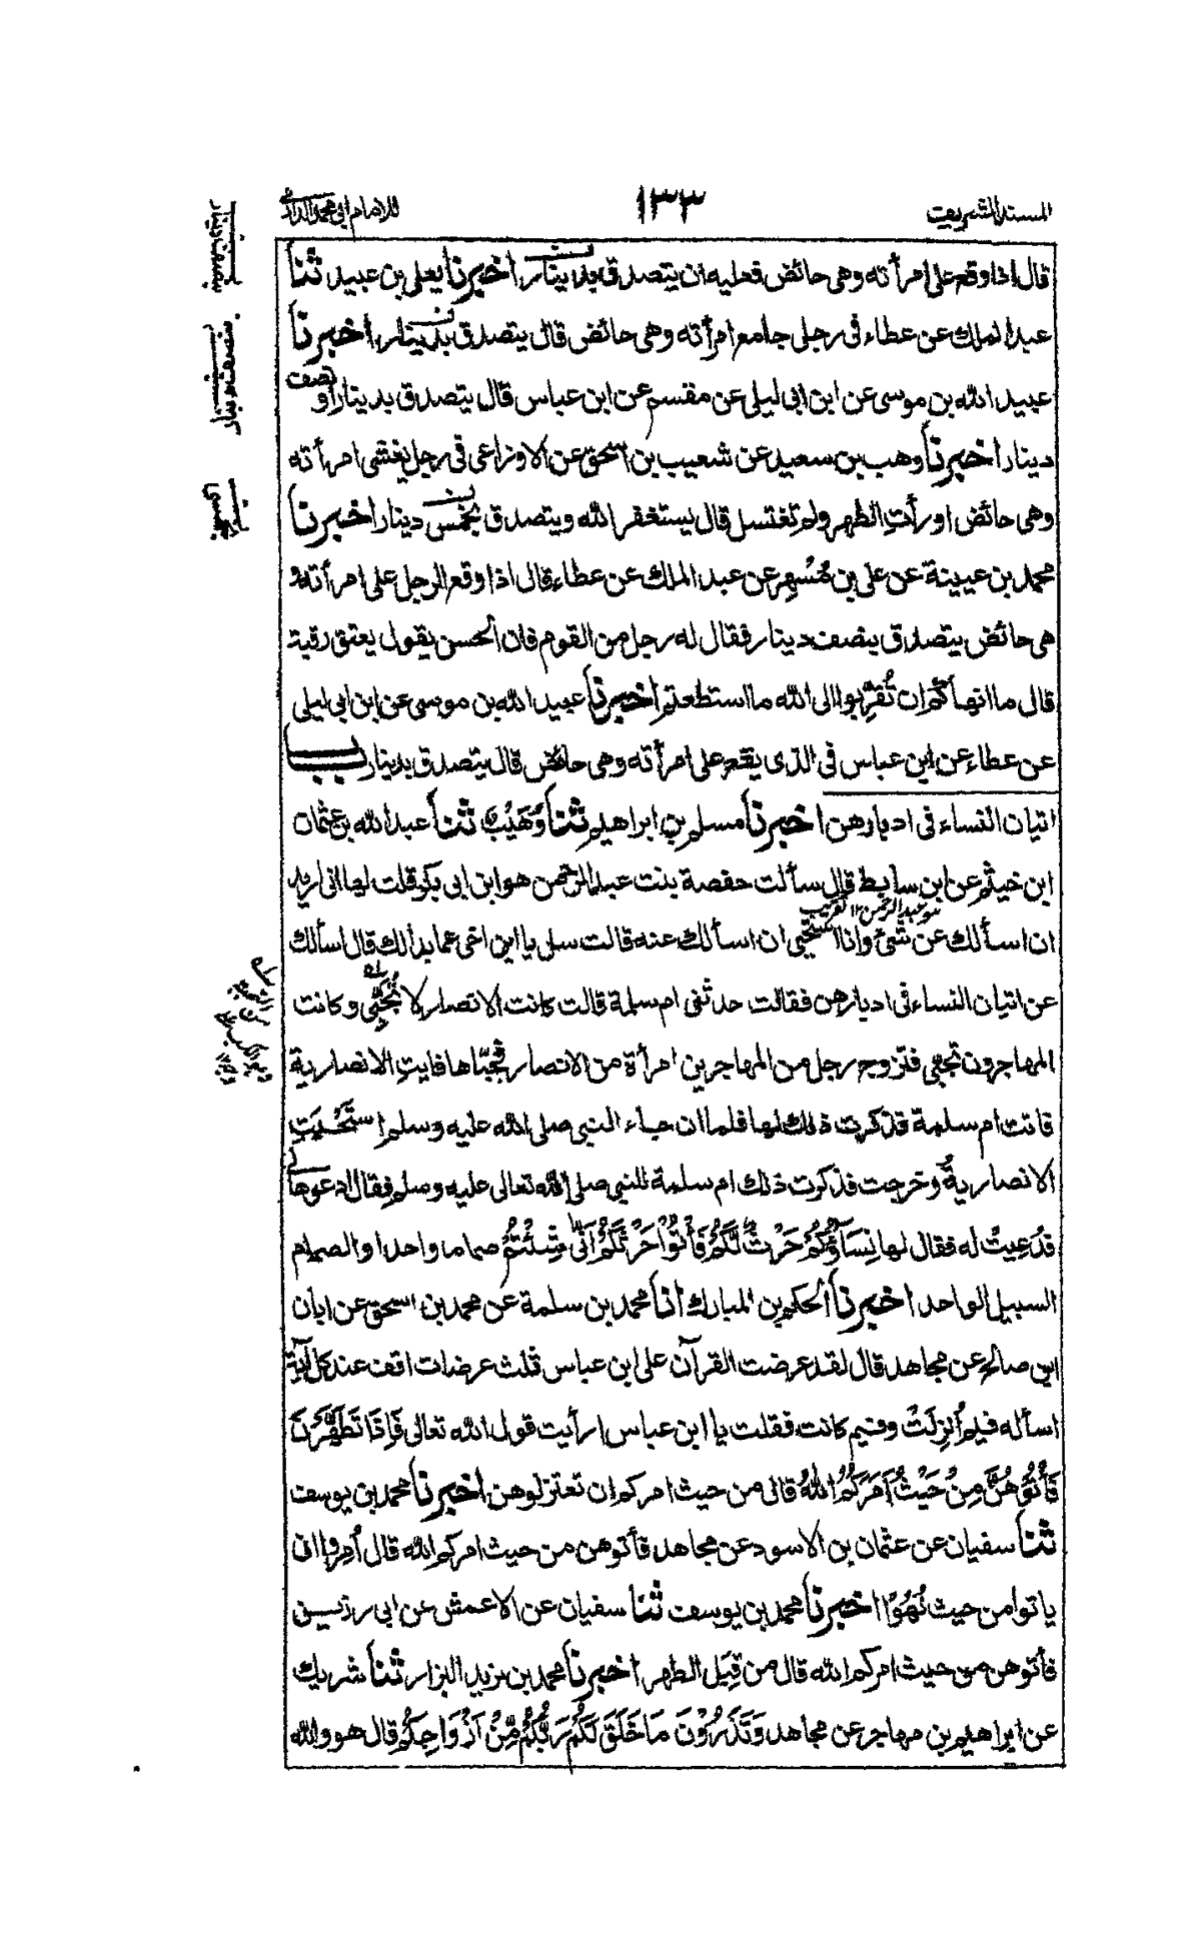 المسند الشريف
١٣٣
للامام ابي محمد الدارمي
قال اذا وقع على امرأته وهي حائض فعليه ان يتصدق بدينار اخبرنا يعلى بن عبيد ثنا
عبد الملك عن عطاء في رجل جامع امرأته وهي حائض قال يتصدق بدينار اخبرنا
عبيد الله بن موسى عن ابن ابي ليلى عن مقسم عن ابن عباس قال يتصدق بدينار او نصف
دينار اخبرنا وهب بن سعيد عن شعيب بن اسحق عن الاوزاعي في رجل يغشى امرأته
وهي حائض او رأت الطهر ولم تغتسل قال يستغفر الله ويتصدق بخمس دينار اخبرنا
محمد بن عيينة عن علي بن مُسْهِر عن عبد الملك عن عطاء قال اذا وقع الرجل على امرأته و
هي حائض يتصدق بنصف دينار فقال له رجل من القوم فان الحسن يقول يعتق رقبة
قال ما انهاكم ان تُقرِّبوا الى الله ما استطعتم اخبرنا عبيد الله بن موسى عن ابن ابي ليلى
عن عطاء عن ابن عباس في الذي يقع على امرأته وهي حائض قال يتصدق بدينار باب
اتيان النساء في ادبارهن اخبرنا مسلم بن ابراهيم ثنا وُهَيْب ثنا عبد الله بن عثمان
ابن خيثم عن ابن سابط قال سألت حفصة بنت عبد الرحمن هو ابن ابي بكر قلت لها اني اريد
ان اسألك عن شئ وانا استحيي ان اسألك عنه قالت سل يا ابن اخي عما بدا لك قال اسألك
عن اتيان النساء في ادبارهن فقالت حدثتني ام سلمة قالت كانت الانصار لا تُجَبِّي وكانت
المهاجرون تجبي فتزوج رجل من المهاجرين امرأة من الانصار فجبّاها فابت الانصارية
فاتت ام سلمة فذكرت ذلك لها فلما ان جاء النبي صلى الله عليه وسلم استَحْيَتِ
الانصاريةُ وخرجت فذكرت ذلك ام سلمة للنبي صلى الله تعالى عليه وسلم فقال ادعوها لي
فدُعِيتْ له فقال لها نِسَاؤُكُمْ حَرْثٌ لَّكُمْ فَأْتُوْا حَرْثَكُمْ اَنّٰى شِئْتُمْ صماما واحدا والصمام
السبيل الواحد اخبرنا الحكم بن المبارك انا محمد بن سلمة عن محمد بن اسحق عن ابان
ابن صالح عن مجاهد قال لقد عرضت القرآن على ابن عباس ثلث عرضات اقف عند كل آية
اسأله فيم اُنزِلَتْ وفيم كانت فقلت يا ابن عباس ارأيت قول الله تعالى فَاِذَا تَطَهَّرْنَ
فَأْتُوْهُنَّ مِنْ حَيْثُ اَمَرَكُمُ اللهُ قال من حيث امركم ان تعتزلوهن اخبرنا محمد بن يوسف
ثنا سفيان عن عثمان بن الاسود عن مجاهد فأتوهن من حيث امركم الله قال اُمِروا ان
ياتوا من حيث نُهُوْا اخبرنا محمد بن يوسف ثنا سفيان عن الاعمش عن ابي رزين
فأتوهن من حيث امركم الله قال من قِبَل الطهر اخبرنا محمد بن يزيد البزار ثنا شريك
عن ابراهيم بن مهاجر عن مجاهد وَتَذَرُوْنَ مَا خَلَقَ لَكُمْ رَبُّكُمْ مِّنْ اَزْوَاجِكُمْ قال هو والله